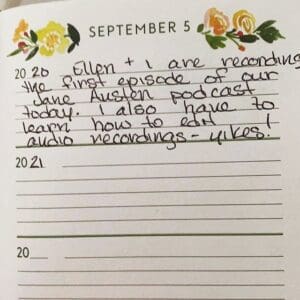 SEPTEMBER 5
2020 Ellen + I are recording
the first episode of our
Jane Austen podcast
today. I also have to
learn how to edit
audio recordings - yikes!
2021
20